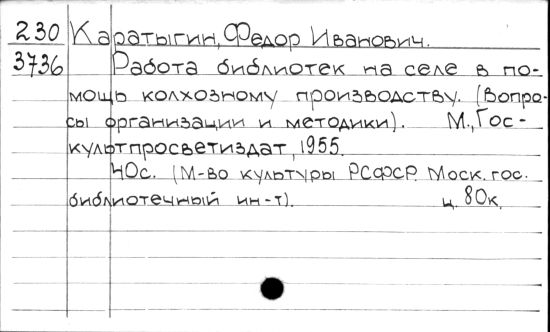 230 Каратыгин, Федор Иванович.
3736 Работа библиотек на селе в по-
мощь колхозному производству. (Вопро-
сы организации и методики). М., Гос-
культпросветиздат, 1955.
40с. (М-во культуры РСФСР. Моск. гос.
библиотечный ин-т). ц. 80к.